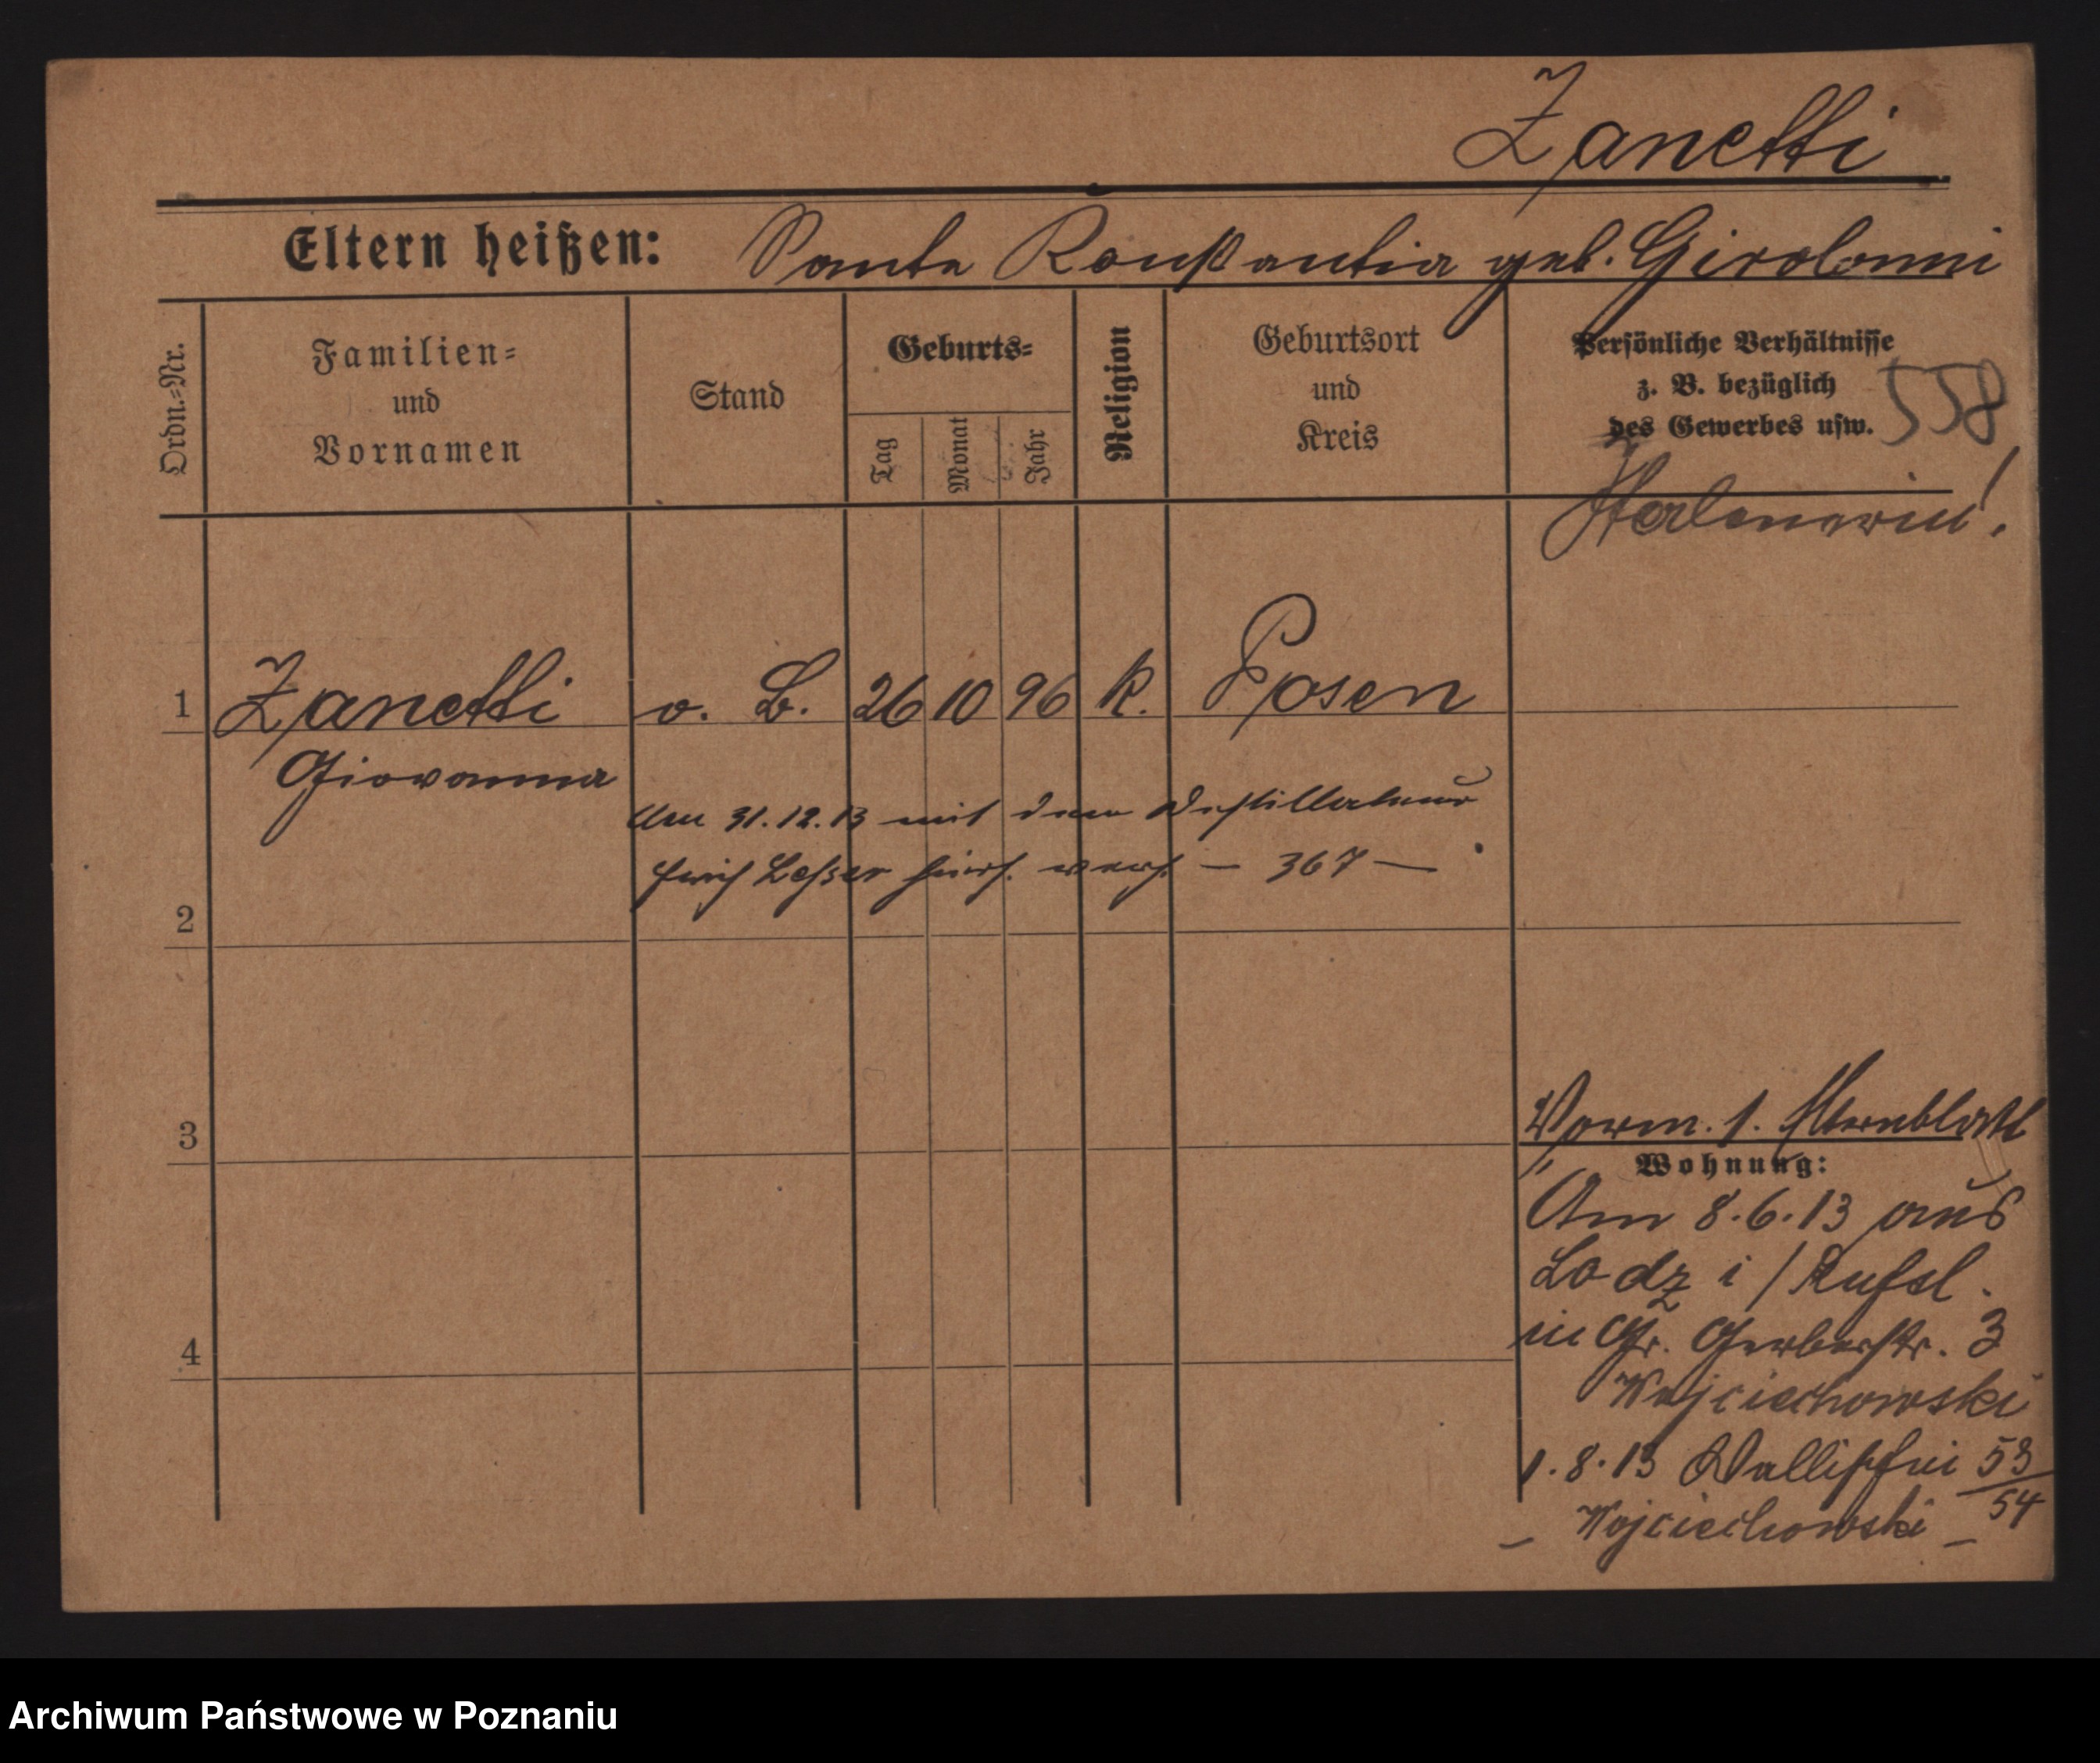 Zanetti
Eltern heißen: Sante Konstantia geb. Girolomni
Ordn.-Nr.
Familien-
und
Vornamen
Stand
Geburts-
Tag
Monat
Jahr
Religion
Geburtsort
und
Kreis
Persönliche Verhältnisse
z. B. bezüglich
des Gewerbes usw.
558
Italienerin!
1 Zanetti o. B. 26 10 96 K. Posen
Giovanna
Am 31.12.13 mit dem Destillateur
Erich Lesser hiers. verh. — 367 —
2
3
Vorm. s. Elternblatt
Wohnung:
Am 8.6.13 aus
Lodz i/Russl.
in Gr. Gerberstr. 3
Wojciechowski
4
1.8.13 Wallischei 53/54
– Wojciechowski –
Archiwum Państwowe w Poznaniu